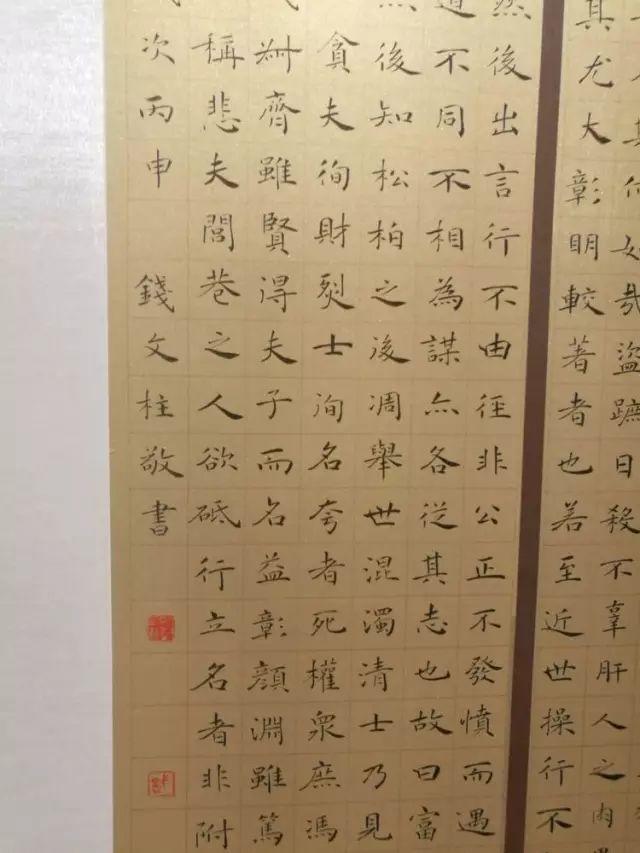 其何如哉盜蹠日殺不辜肝人之肉
其尤大彰明較著者也若至近世操行不
然後出言行不由徑非公正不發憤而遇
道不同不相為謀亦各從其志也故曰富
然後知松柏之後凋舉世混濁清士乃見
貪夫徇財烈士洵名夸者死權衆庶馮
叔齊雖賢得夫子而名益彰顏淵雖篤
稱悲夫閭巷之人欲砥行立名者非附
次丙申 錢文柱敬書